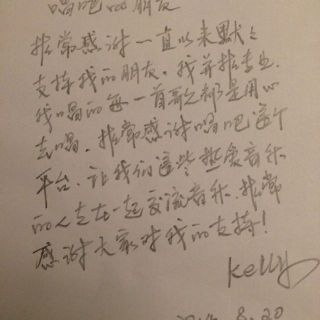 唱吧的朋友
非常感谢一直以来默々
支持我的朋友。我并非专业.
我唱的每一首歌都是用心
去唱。非常感谢唱吧这个
平台.让我们这些热爱音乐
的人走在一起交流音乐.非常
感谢大家对我的支持!
Kelly
8.20